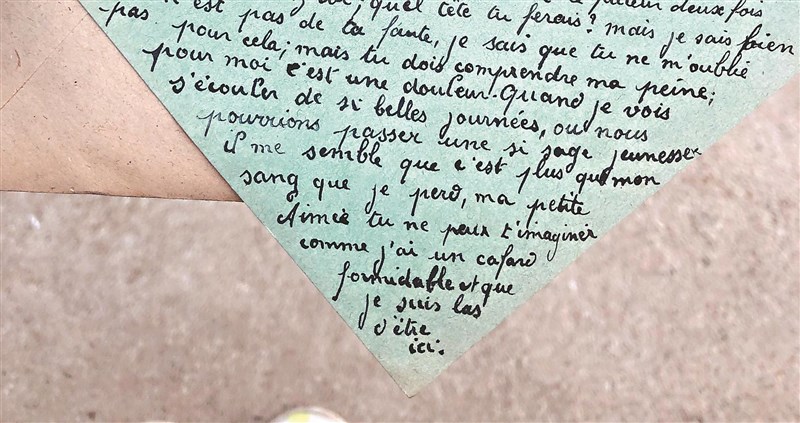 quel tête tu ferais? mais je sais bien
n'est pas de ta faute, je sais que tu ne m'oublie
pas pour cela; mais tu dois comprendre ma peine;
pour moi c'est une douleur. Quand je vois
s'écouler de si belles journées, ou nous
pourrions passer une si sage jeunesse
il me semble que c'est plus que mon
sang que je perd, ma petite
Aimée tu ne peux t'imaginer
comme j'ai un cafard
formidable et que
je suis las
d'être
ici.